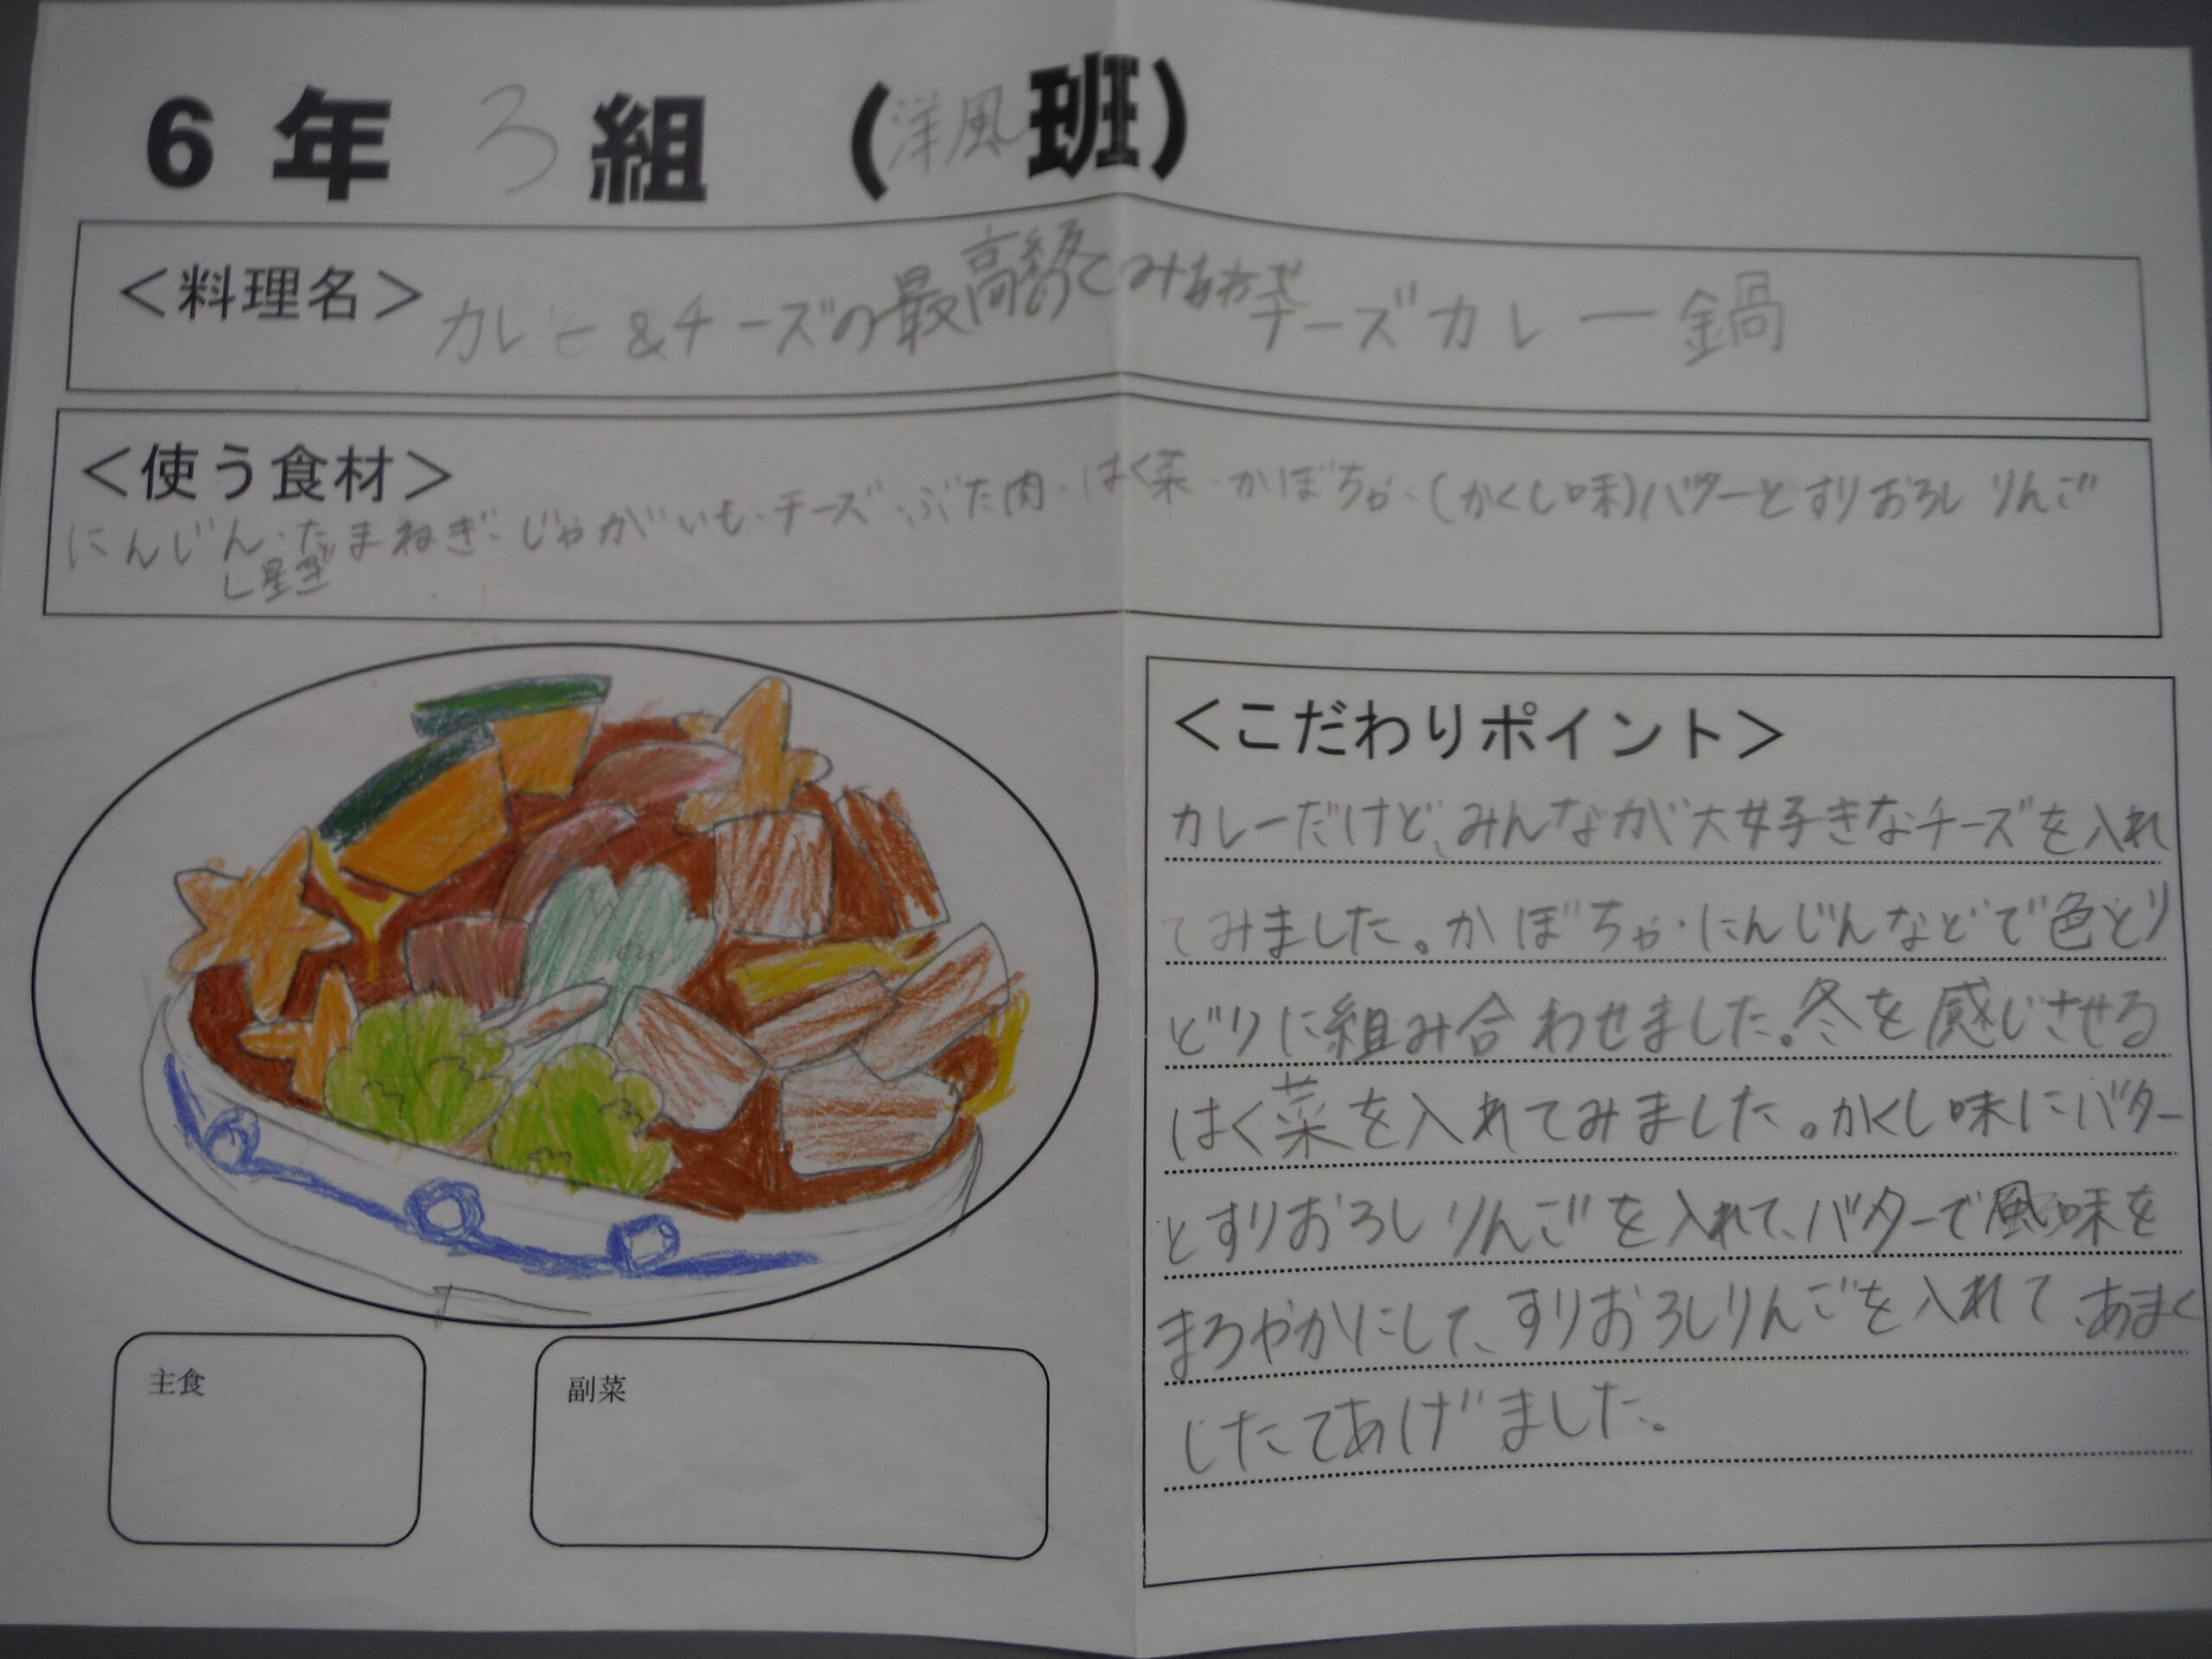 6年 3 組 (洋風班)
<料理名> カレー&チーズの最高 チーズカレー鍋
<使う食材>
にんじん・たまねぎ・じゃがいも・チーズ・ぶた肉・はく菜・かぼちゃ・(かくし味)バターとすりおろしりんご
<こだわりポイント>
カレーだけど、みんなが大好きなチーズを入れ
てみました。かぼちゃ・にんじんなどで色とり
どりに組み合わせました。冬を感じさせる
はく菜を入れてみました。かくし味にバター
とすりおろしりんごを入れて、バターで風味を
まろやかにして、すりおろしりんごを入れて、あまく
したてあげました。
主食
副菜